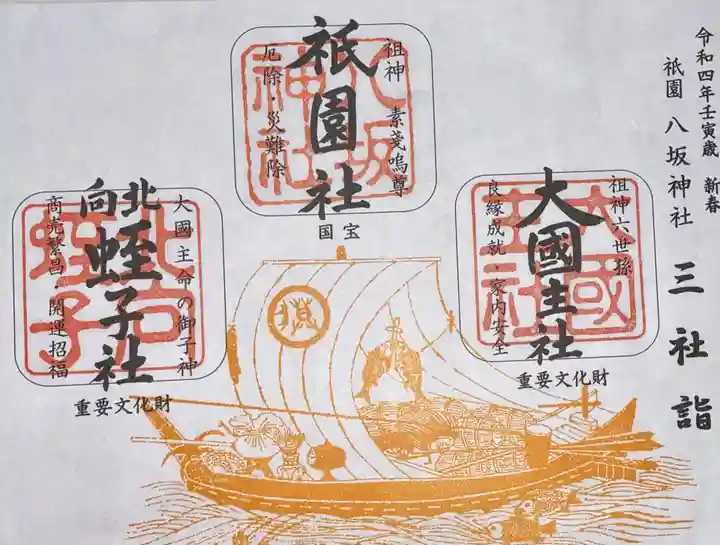 令和四年壬寅歳 新春
祇園 八坂神社 三社詣
祖神 素戔嗚尊
祇園社
厄除・災難除
八坂神社
国宝
祖神六世孫
大國主社
良縁成就・家内安全
大國主社
重要文化財
大國主命の御子神
北向蛭子社
商売繁昌・開運招福
北向蛭子
重要文化財